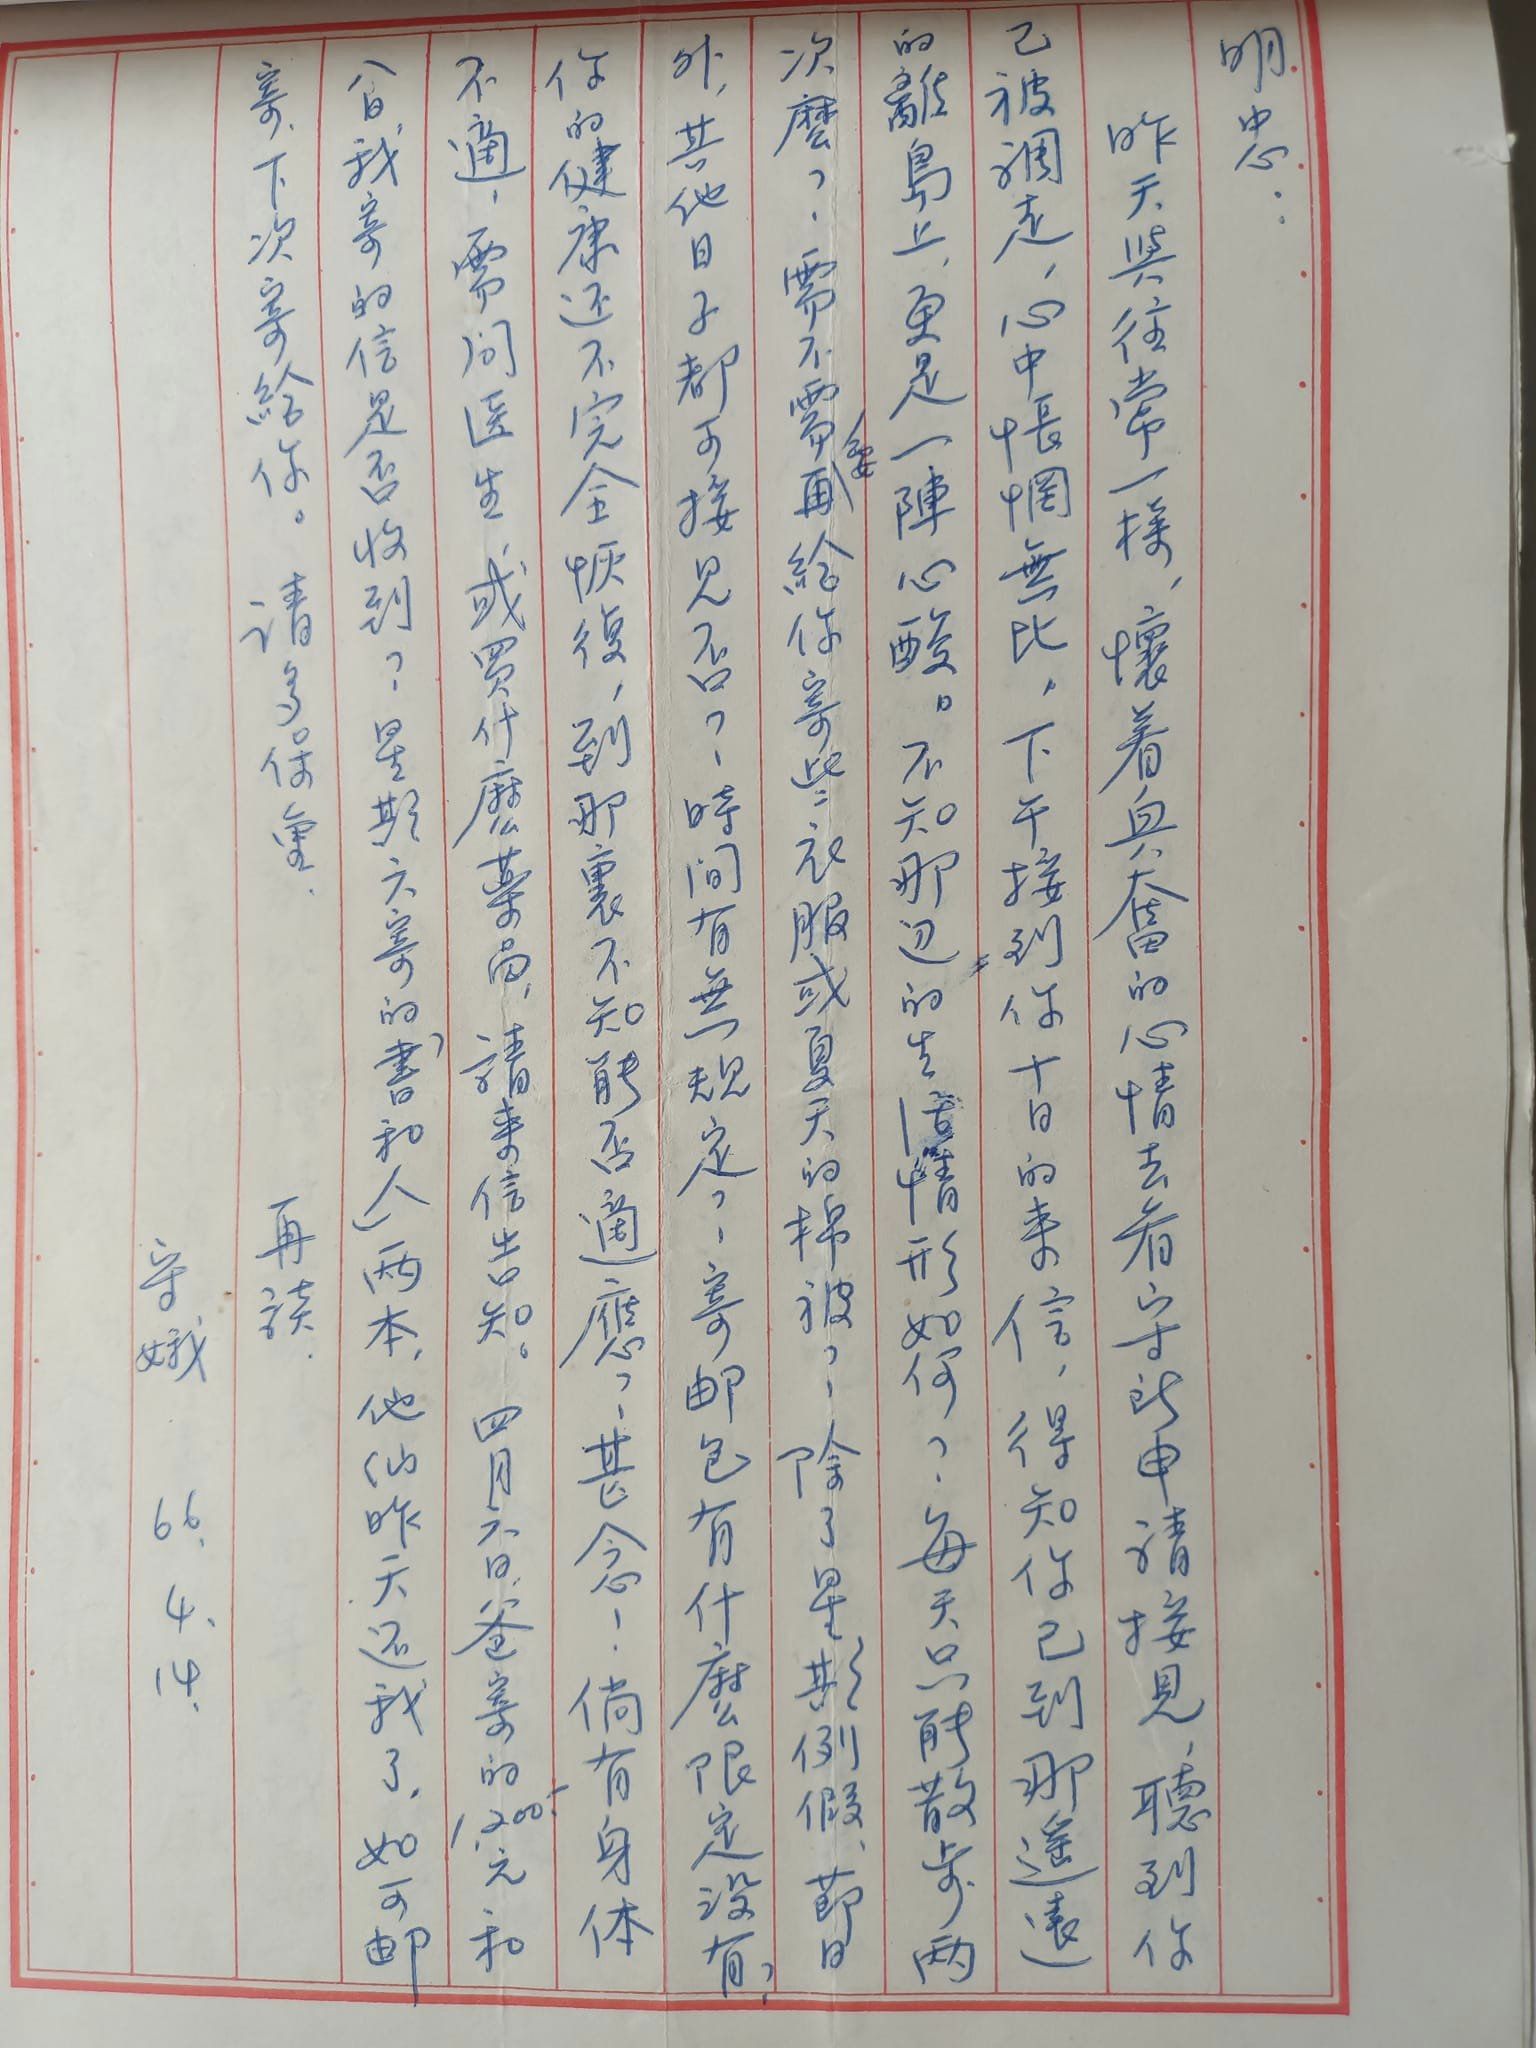 明忠：
昨天與往常一樣，懷着興奮的心情去看守所申請接見，聽到你
已被調走，心中悵惘無比，下午接到你十日的來信，得知你已到那遙遠
的離島上，更是一陣心酸。不知那边的生活情形如何？每天只能散步兩
次麼？需不需要再給你寄些衣服或夏天的棉被？除了星期例假、節日
外，其他日子都可接見否？時間有無規定？寄邮包有什麼限定沒有？
你的健康还不完全恢復，到那裏不知能否適應？甚念！倘有身体
不適，需问医生，或買什麼藥品，請來信告知。四月六日爸寄的1,200元和
八日我寄的信是否收到？星期六寄的書和人兩本，他们昨天还我了，如可邮
寄，下次寄給你。請多保重．
再談．
守娥 66.4.14.